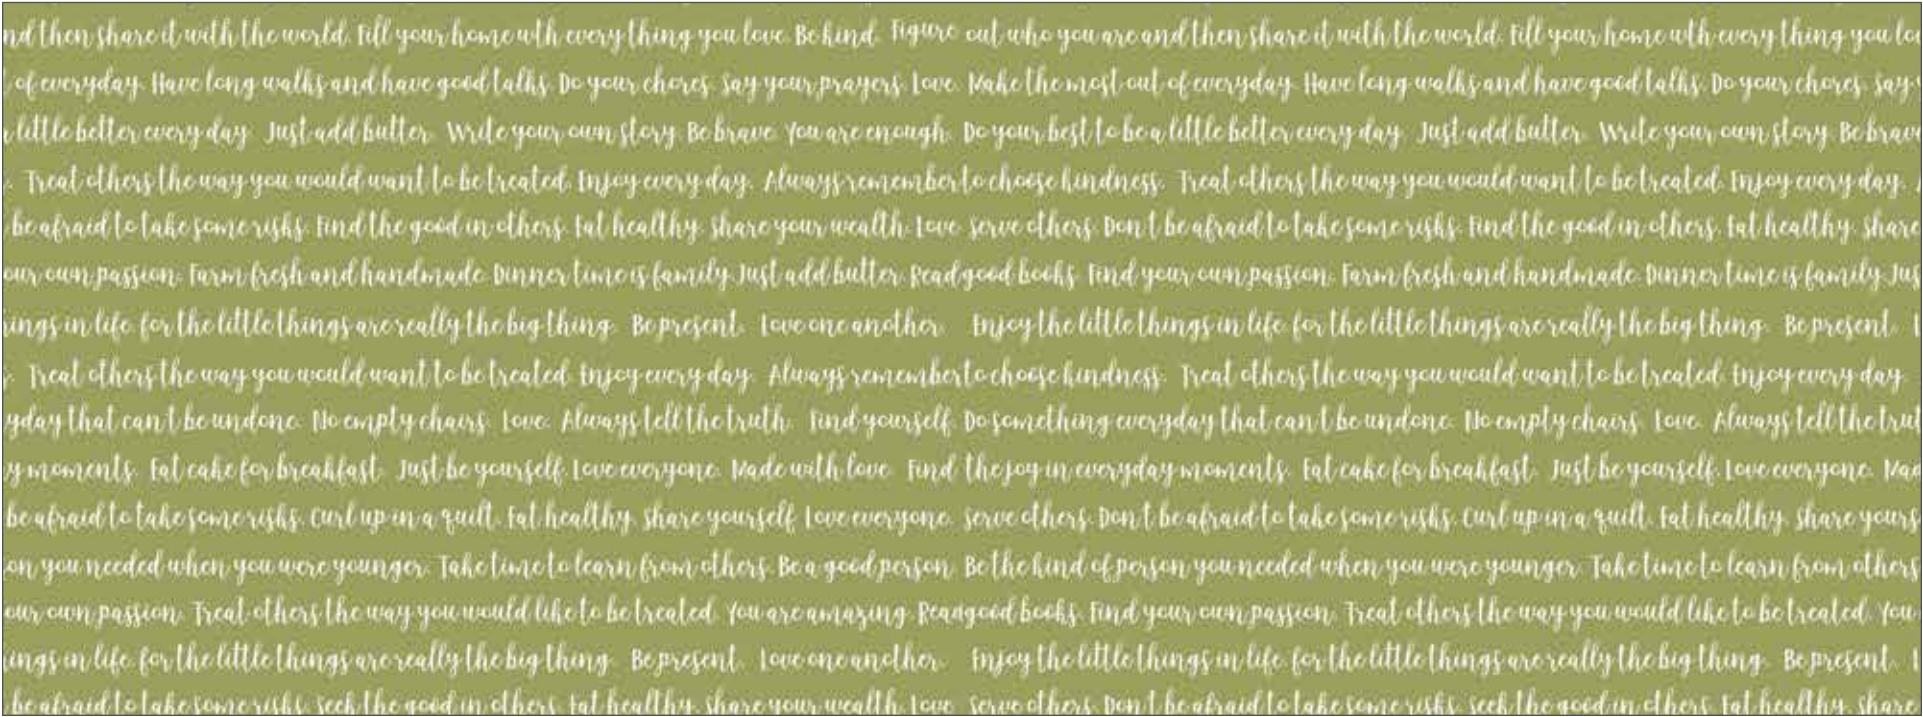 nd then share it with the world. Fill your home wth every thing you love. Be kind. Figure out who you are and then share it with the world. Fill your home wth every thing you lo
of everyday. Have long walks and have good talks. Do your chores. Say your prayers. Love. Make the most out of everyday. Have long walks and have good talks. Do your chores. Say
a little better every day. Just add butter. Write your own story. Be brave. You are enough. Do your best to be a little better every day. Just add butter. Write your own story. Be brave
. Treat others the way you would want to be treated. Enjoy every day. Always remember to choose kindness. Treat others the way you would want to be treated. Enjoy every day.
be afraid to take some risks. Find the good in others. Eat healthy. Share your wealth. Love. Serve others. Don't be afraid to take some risks. Find the good in others. Eat healthy. Share
our own passion. Farm fresh and handmade. Dinner time is family. Just add butter. Read good books. Find your own passion. Farm fresh and handmade. Dinner time is family. Jus
ings in life. for the little things are really the big thing. Be present. Love one another. Enjoy the little things in life. for the little things are really the big thing. Be present. L
. Treat others the way you would want to be treated. Enjoy every day. Always remember to choose kindness. Treat others the way you would want to be treated. Enjoy every day.
yday that can't be undone. No empty chairs. Love. Always tell the truth. Find yourself. Do something everyday that can't be undone. No empty chairs. Love. Always tell the trut
y moments. Eat cake for breakfast. Just be yourself. Love everyone. Made with love. Find the joy in everyday moments. Eat cake for breakfast. Just be yourself. Love everyone. Mad
be afraid to take some risks. Curl up in a quilt. Eat healthy. Share yourself. Love everyone. Serve others. Don't be afraid to take some risks. Curl up in a quilt. Eat healthy. Share yours
on you needed when you were younger. Take time to learn from others. Be a good person. Be the kind of person you needed when you were younger. Take time to learn from others
our own passion. Treat others the way you would like to be treated. You are amazing. Read good books. Find your own passion. Treat others the way you would like to be treated. You
ings in life. for the little things are really the big thing. Be present. Love one another. Enjoy the little things in life. for the little things are really the big thing. Be present. L
be afraid to take some risks. Seek the good in others. Eat healthy. Share your wealth. Love. Serve others. Don't be afraid to take some risks. Seek the good in others. Eat healthy. Share